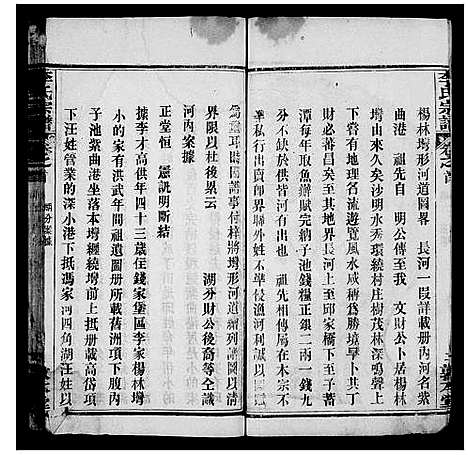 李氏宗譜
卷之首
楊林塆形河道圖畧 長河一段詳載册内河名紫
曲港 祖先自 明公傳至我 文財公卜居楊林
塆由來久矣沙明水秀環繞村庄樹茂林深鳴聲上
下必有地理名流遊覽其間風水咸稱為勝境早卜其丁
財必蕃昌矣至其地界河長上至邱家橋下至子蓄
潭每年取魚辦賦完納子池錢糧正銀二兩一錢九
分不紊於供皆河有出也 祖先相傳在本宗不
准私行出賣卽界縣外姓不準侵漁河利誠以圖
爲憑耳嗣因譜事付梓將塆形河道繪列譜圖以清
界限以杜後累云
湖分財公後裔等仝識
河内案據
正堂恒 憲訊明斷結
據李才高供年四十三歲住錢家堡區李家楊林塆
小的家有洪武年間祖遺圖册所載舊洲項下腹内
子池紫曲港坐落本塆纏繞塆前上抵册載高岱橋
下汪姓管業的深小港下抵馮家河四角湖汪姓以
李氏宗譜
卷之首